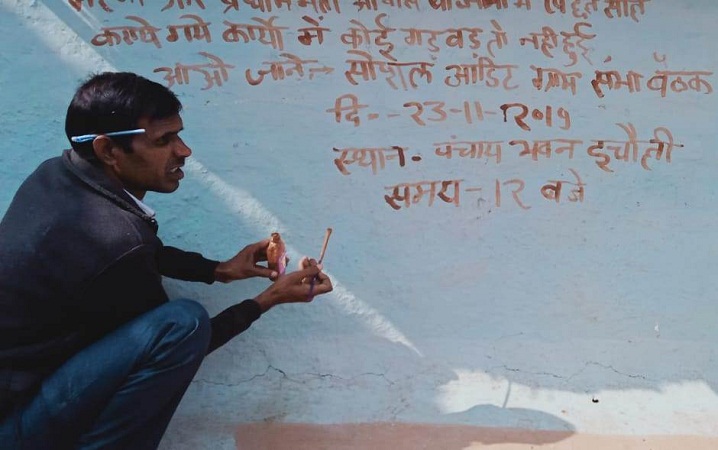 और प्रधानमंत्री आवास योजना में
कराये गये कार्यो में कोई गड़वड़ तो नही हुई
आओ जाने सोशल आडिट ग्राम सभा बैठक
दि०- 23-11-2019
स्थान. पंचायत भवन इचौली
समय - 12 बजे